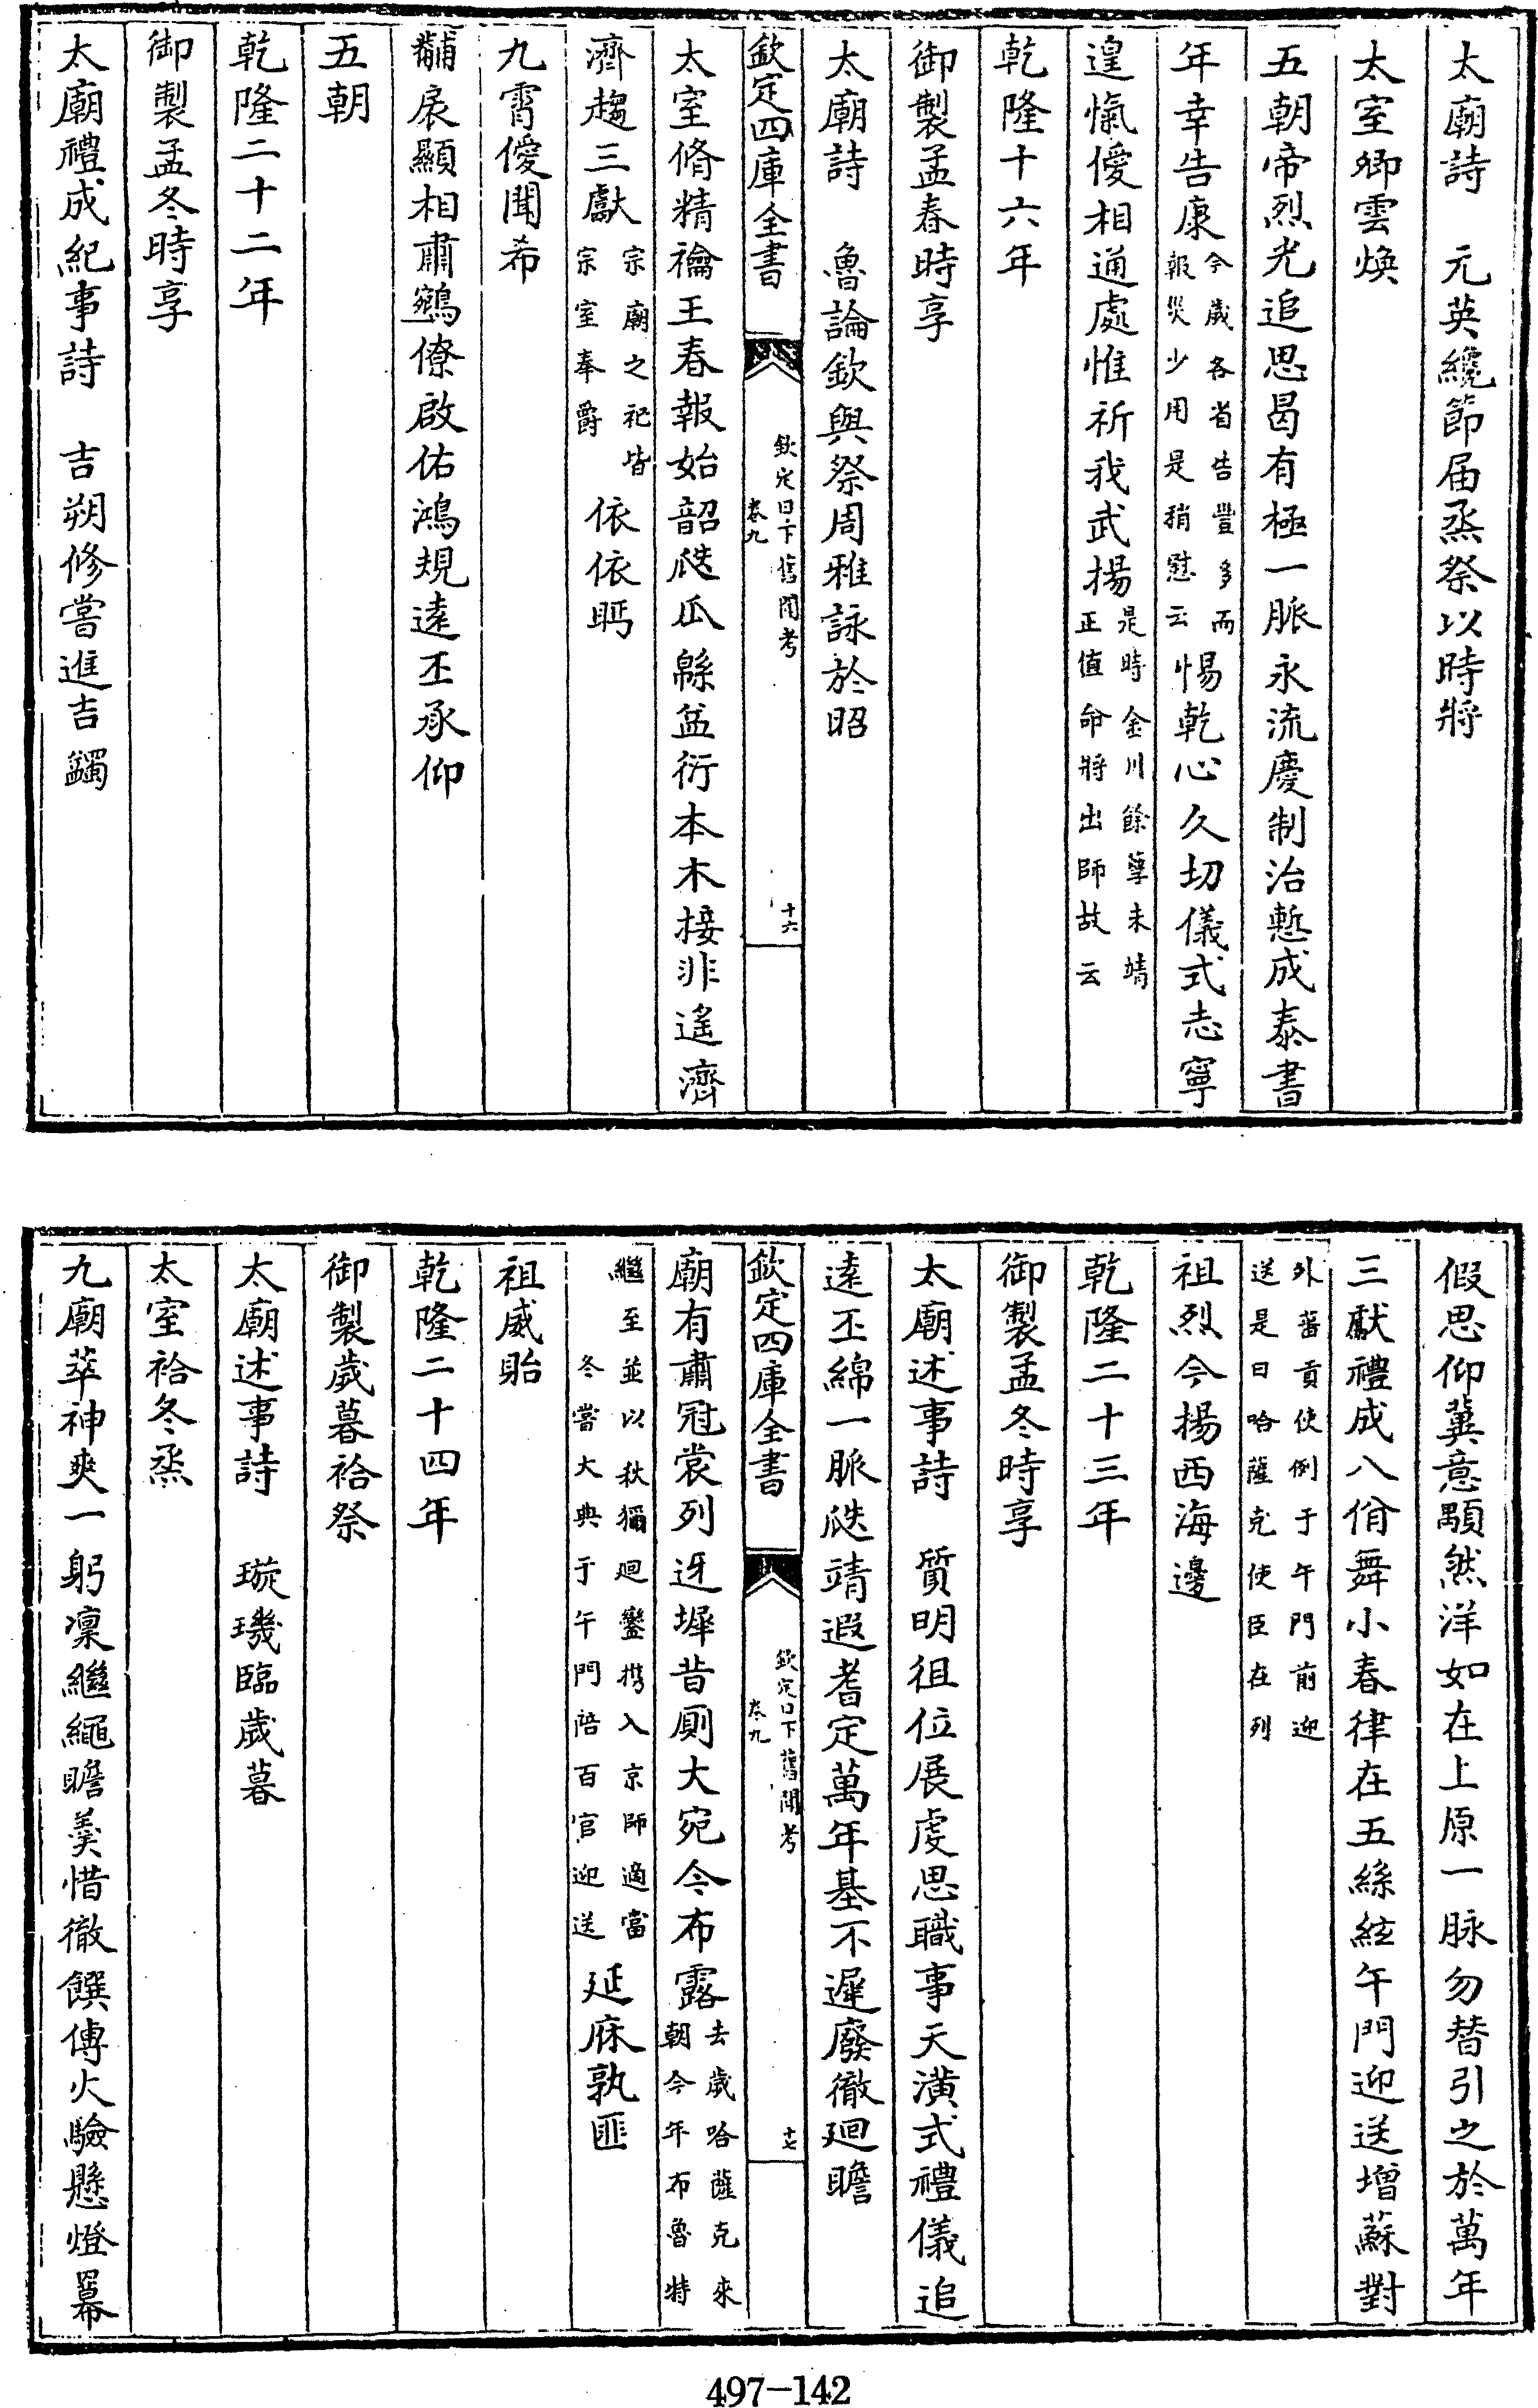 太廟詩　元英纔節届烝祭以時將
太室卿雲煥
五朝帝烈光追思曷有極一脈永流慶制治慙成泰書
年幸告康今歲各省告豐多而報災少用是稍慰云惕乾心久切儀式志寧
遑愾僾相通處惟祈我武揚是時金川餘孽未靖正值命將出師故云
乾隆十六年
御製孟春時享
太廟詩　魯論欽與祭周雅詠於昭
欽定四庫全書　欽定日下舊聞考卷九　十六
太室脩精禴王春報始韶瓞瓜緜益衍本木接非遙濟
濟趨三獻宗廟之祀皆宗室奉爵依依眄
九霄僾聞希
黼扆顯相肅鵷僚啟佑鴻規遠丕承仰
五朝
乾隆二十二年
御製孟冬時享
太廟禮成紀事詩　吉朔修嘗進吉蠲
假思仰冀意顒然洋如在上原一脉勿替引之於萬年
三獻禮成八佾舞小春律在五絲絃午門迎送增蘇對
外蕃貢使例于午門前迎送是日哈薩克使臣在列
祖烈今揚西海邊
乾隆二十三年
御製孟冬時享
太廟述事詩　質明徂位展虔思職事天潢式禮儀追
遠丕綿一脈瓞靖遐耆定萬年基不遲廢徹廻瞻
欽定四庫全書　欽定日下舊聞考卷九　十七
廟有肅冠裳列迓墀昔厠大宛今布露去歲哈薩克來朝今年布魯特
繼至並以秋獮廻鑾携入京師適當冬嘗大典于午門陪百官迎送延庥孰匪
祖威貽
乾隆二十四年
御製歲暮祫祭
太廟述事詩　璇璣臨歲暮
太室祫冬烝
九廟萃神爽一躬凜繼繩瞻羹惜徹饌傅火驗懸燈羃
497-142